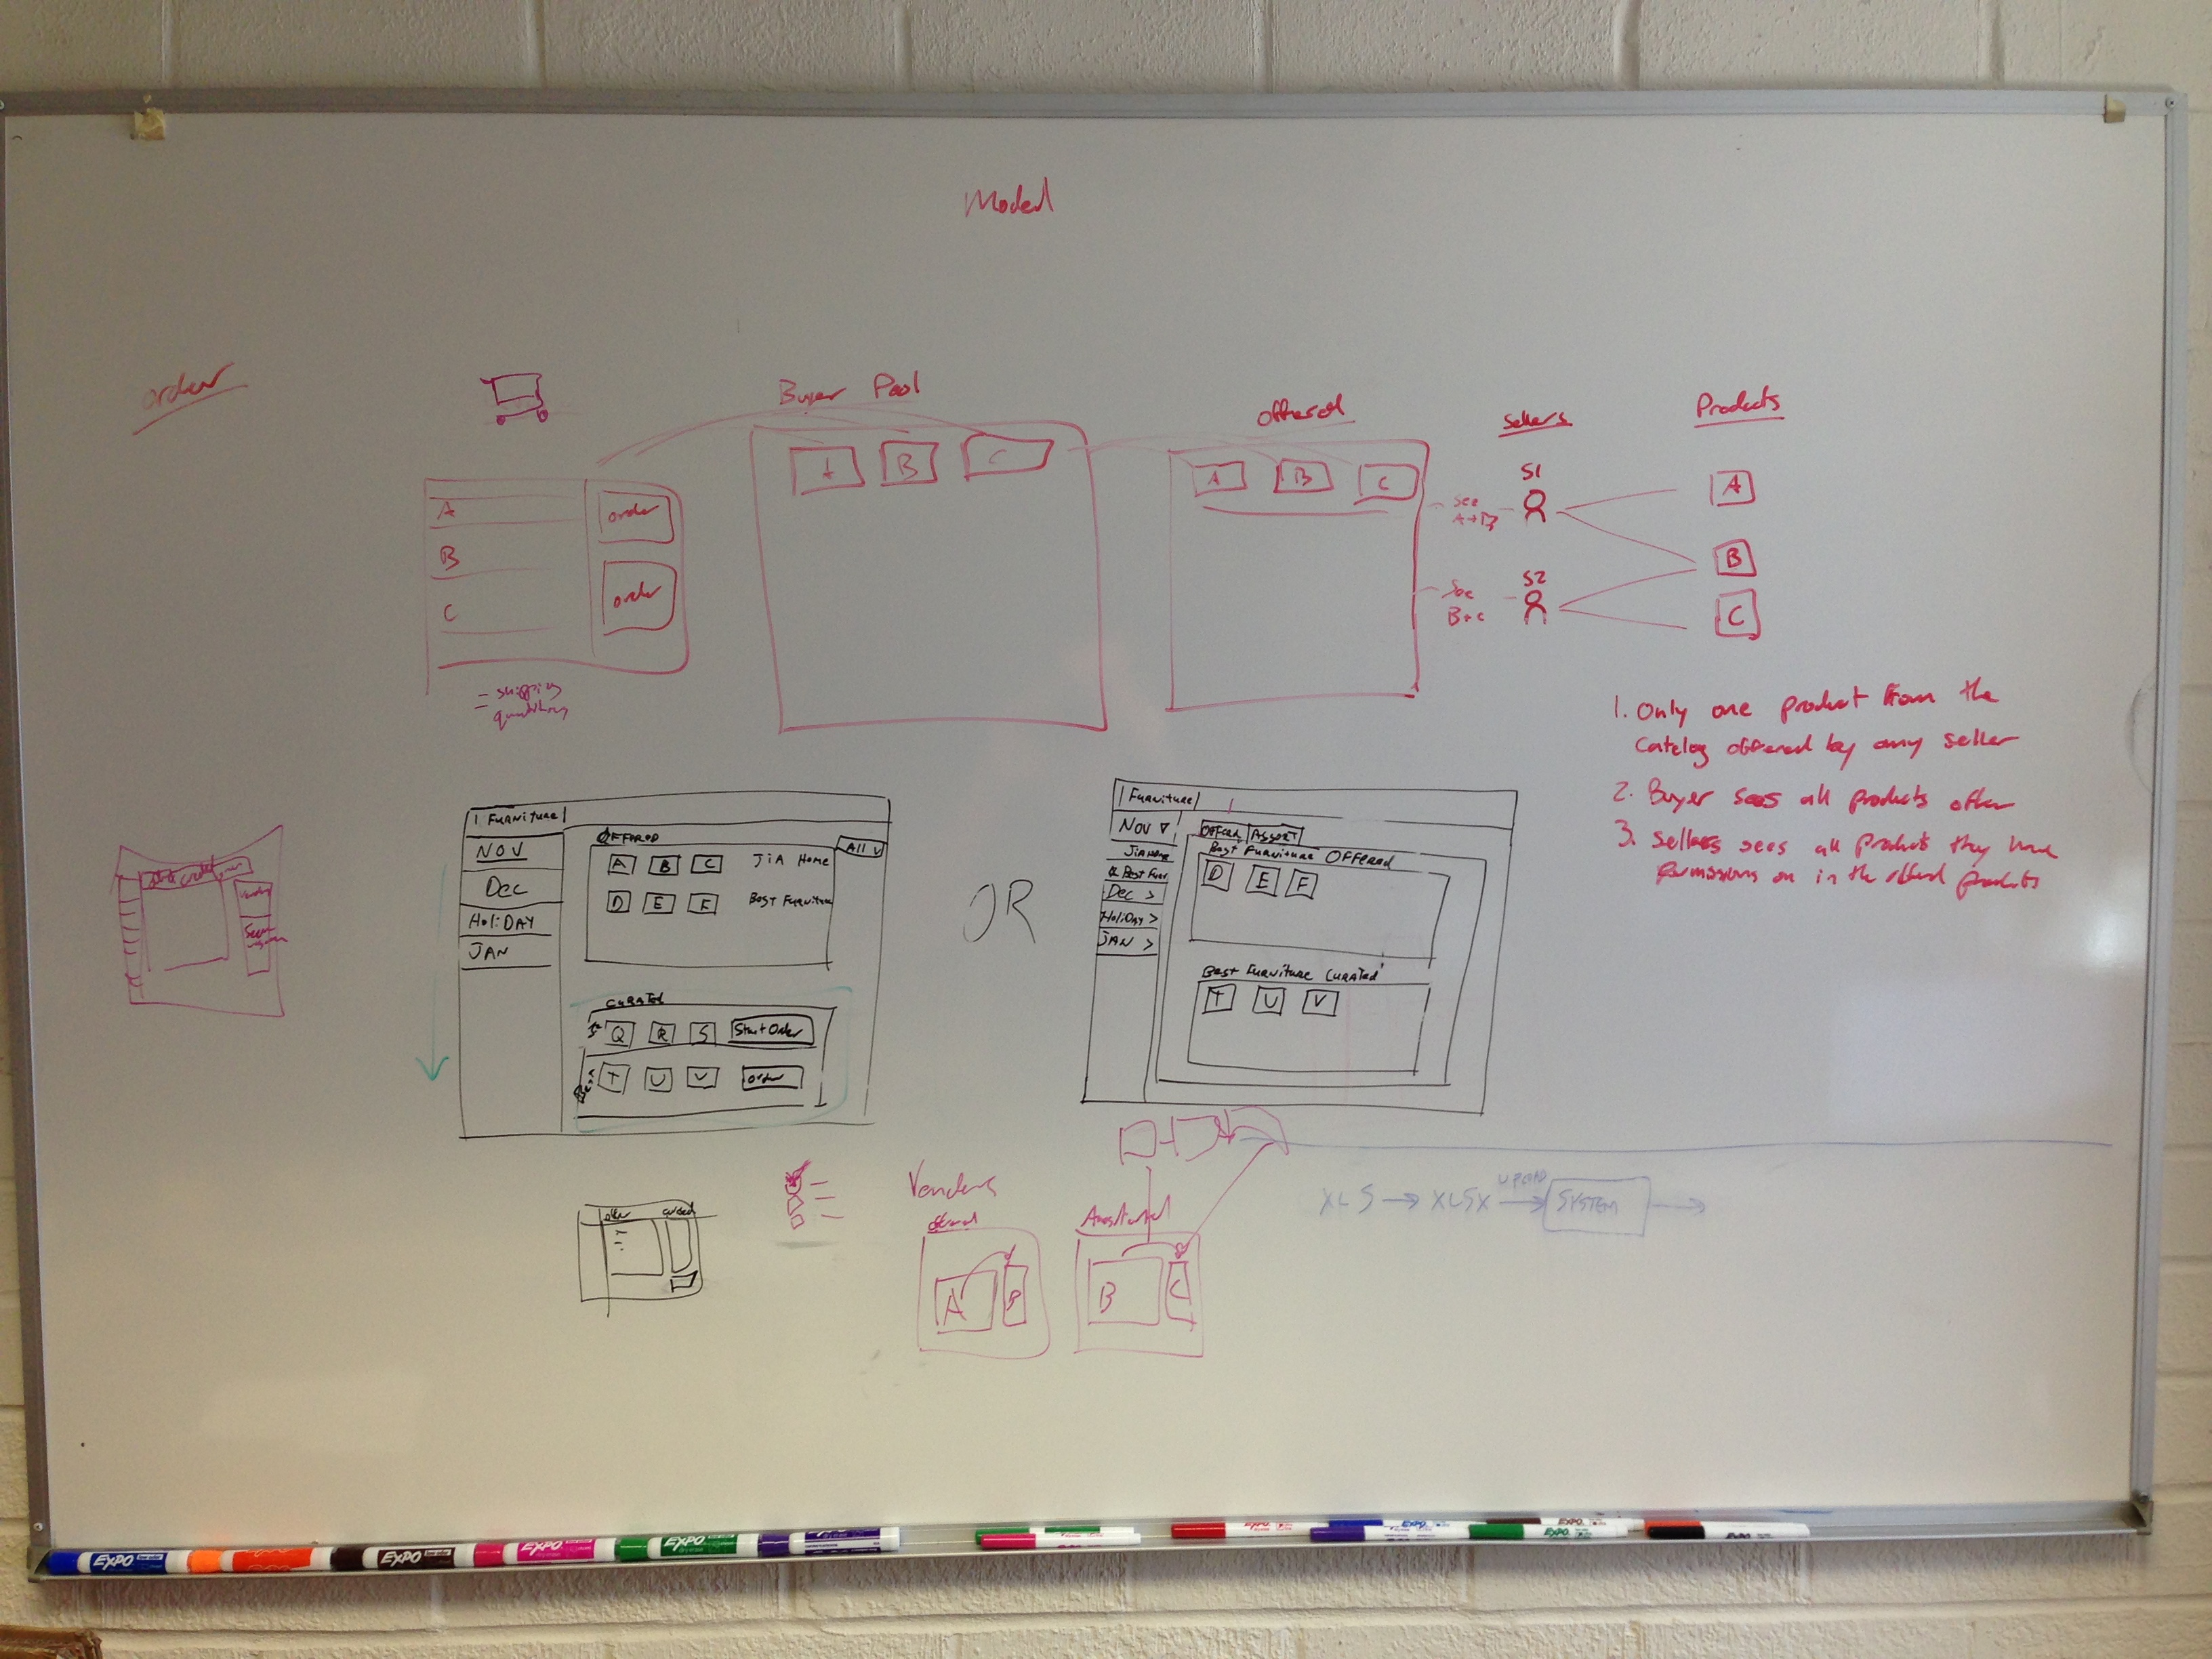 Model
order
Buyer Pool
offered
Sellers
Products
A
B
C
order
order
- shipping
A
B
C
A
B
C
See
A+B
S1
See
B+C
S2
A
B
C
1. Only one product from the
Catelog offered by any seller
2. Buyer sees all products offer
3. Sellers sees all product they have
permissions on in the offerd products
Furniture
NOV
Dec
HoliDAY
JAN
OFFERED
All v
A B C JiA Home
D E F BEST FURNITURE
CURATED
Q R S Start Order
T U V order
OR
Furniture
NOV
JiA Home
Best Furn
Dec >
HoliDay >
JAN >
OFFER ASSORT
Best Furniture OFFERED
D E F
Best Furniture Curated
T U V
Vendors
A B
B C
XLS → XLSX UPLOAD → SYSTEM →
EXPO
EXPO
EXPO
EXPO
EXPO
EXPO
EXPO
EXPO